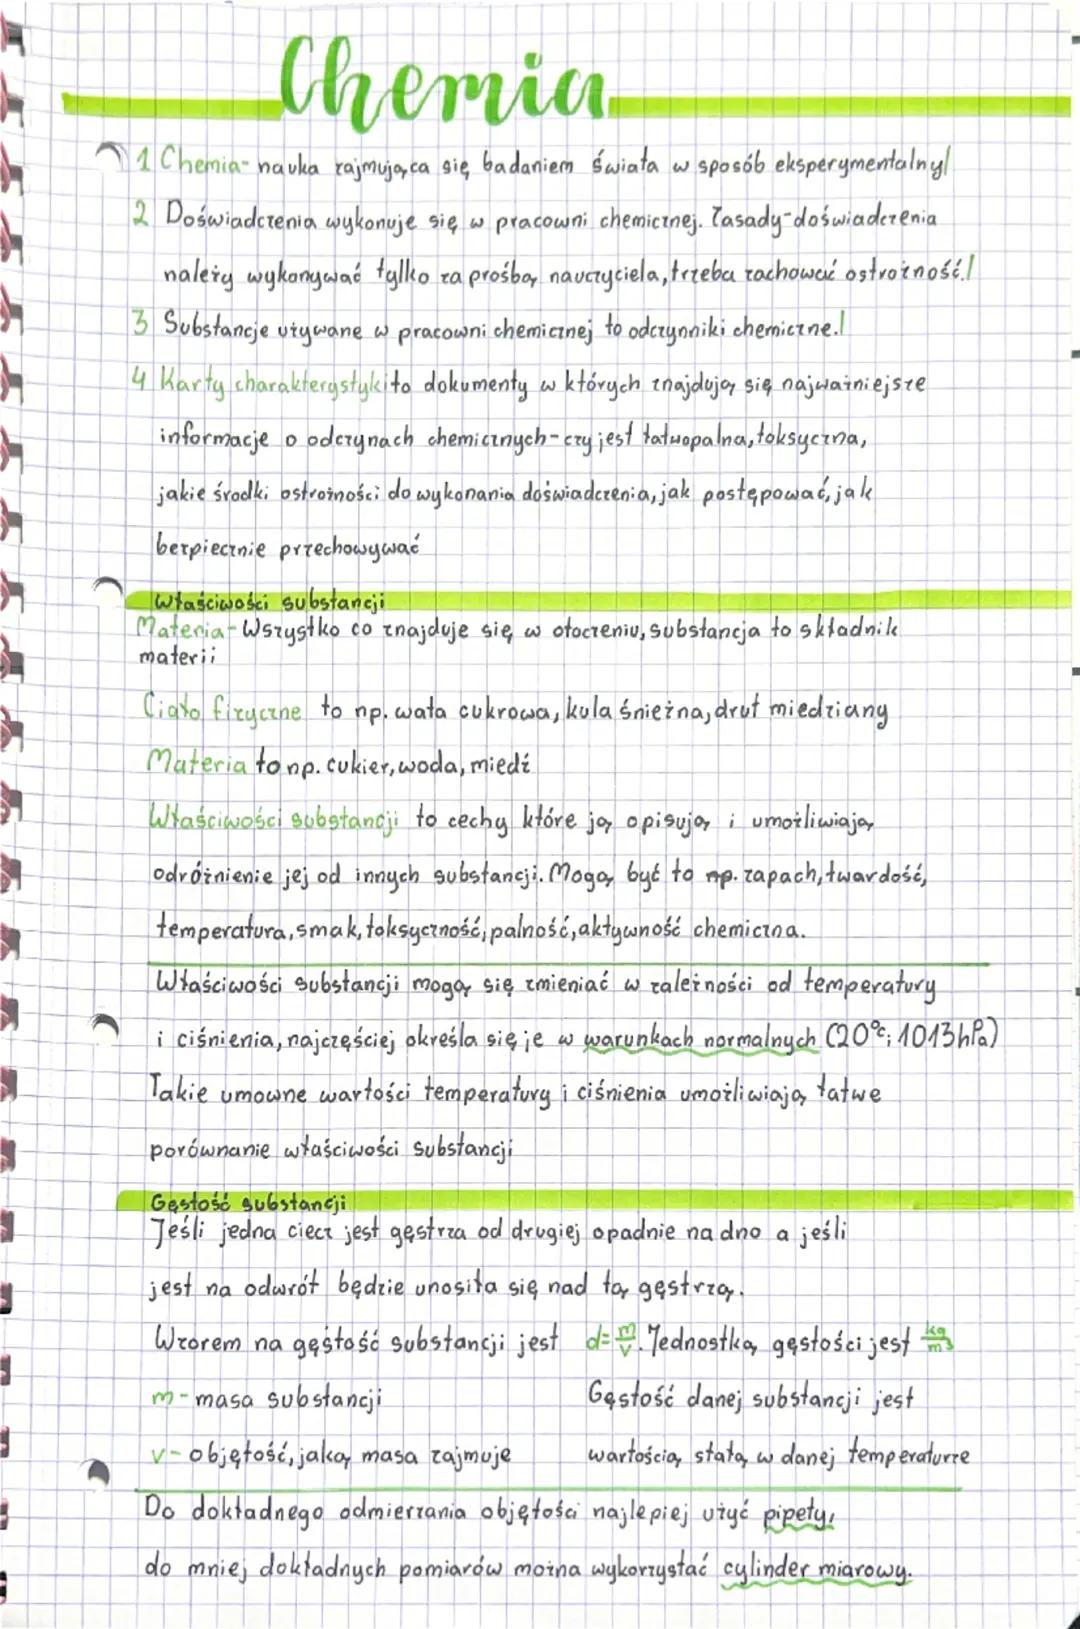 Chemia
1 Chemia- nauka zajmująca się badaniem świata w sposób eksperymentalny/
2 Doświadczenia wykonuje się w pracowni chemicznej. Zasady-doświadczenia
należy wykonywać tylko za prośbą nauczyciela, trzeba zachować ostrożność./
3 Substancje używane w pracowni chemicznej to odczynniki chemiczne./
4 Karty charakterystyki to dokumenty w których znajdują się najważniejsze
informacje o odczynach chemicznych-czy jest łatwopalna, toksyczna,
jakie środki ostrożności do wykonania doświadczenia, jak postępować, jak
bezpiecznie przechowywać
Właściwości substancji
Materia-Wszystko co znajduje się w otoczeniu, substancja to składnik
materii
Ciało fizyczne to np. wata cukrowa, kula śnieżna, drut miedziany
Materia to np. cukier, woda, miedź
Właściwości substancji to cechy które ją opisują i umożliwiają
odróżnienie jej od innych substancji. Mogą być to np. zapach, twardość,
temperatura, smak, toksyczność, palność, aktywność chemiczna.
Właściwości substancji mogą się zmieniać w zależności od temperatury
i ciśnienia, najczęściej określa się je w warunkach normalnych (20°C; 1013hPa)
Takie umowne wartości temperatury i ciśnienia umożliwiają łatwe
porównanie właściwości substancji
Gęstość substancji
Jeśli jedna ciecz jest gęstrza od drugiej opadnie na dno a jeśli
jest na odwrót będzie unosiła się nad tą gęstrzą.
Wzorem na gęstość substancji jest d=m/v. Jednostką gęstości jest kg/m3
m-masa substancji
Gęstość danej substancji jest
v-objętość, jaką masa zajmuje
wartością stałą w danej temperaturze
Do dokładnego odmierzania objętości najlepiej użyć pipety,
do mniej dokładnych pomiarów można wykorzystać cylinder miarowy.